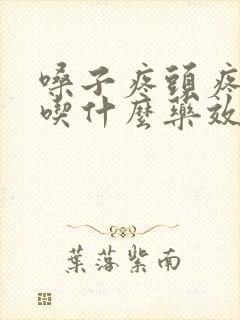 嗓子疼頭疼
喫什麼藥效
葉落紫南